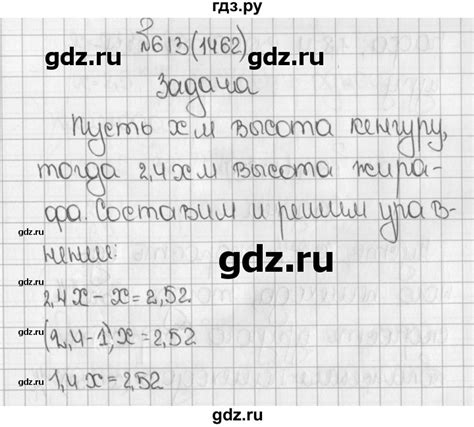 гдз.ру
№613(1462)
gdz.ru gdz.ru
Задача
Пусть x м высота кенгуру,
тогда 2,4x м высота жира-
фа. Составим и решим урав-
gdz.ru
нение:
gdz.ru
2,4x - x = 2,52
(2,4-1)x = 2,52
gdz.ru gdz.ru
1,4x = 2,52